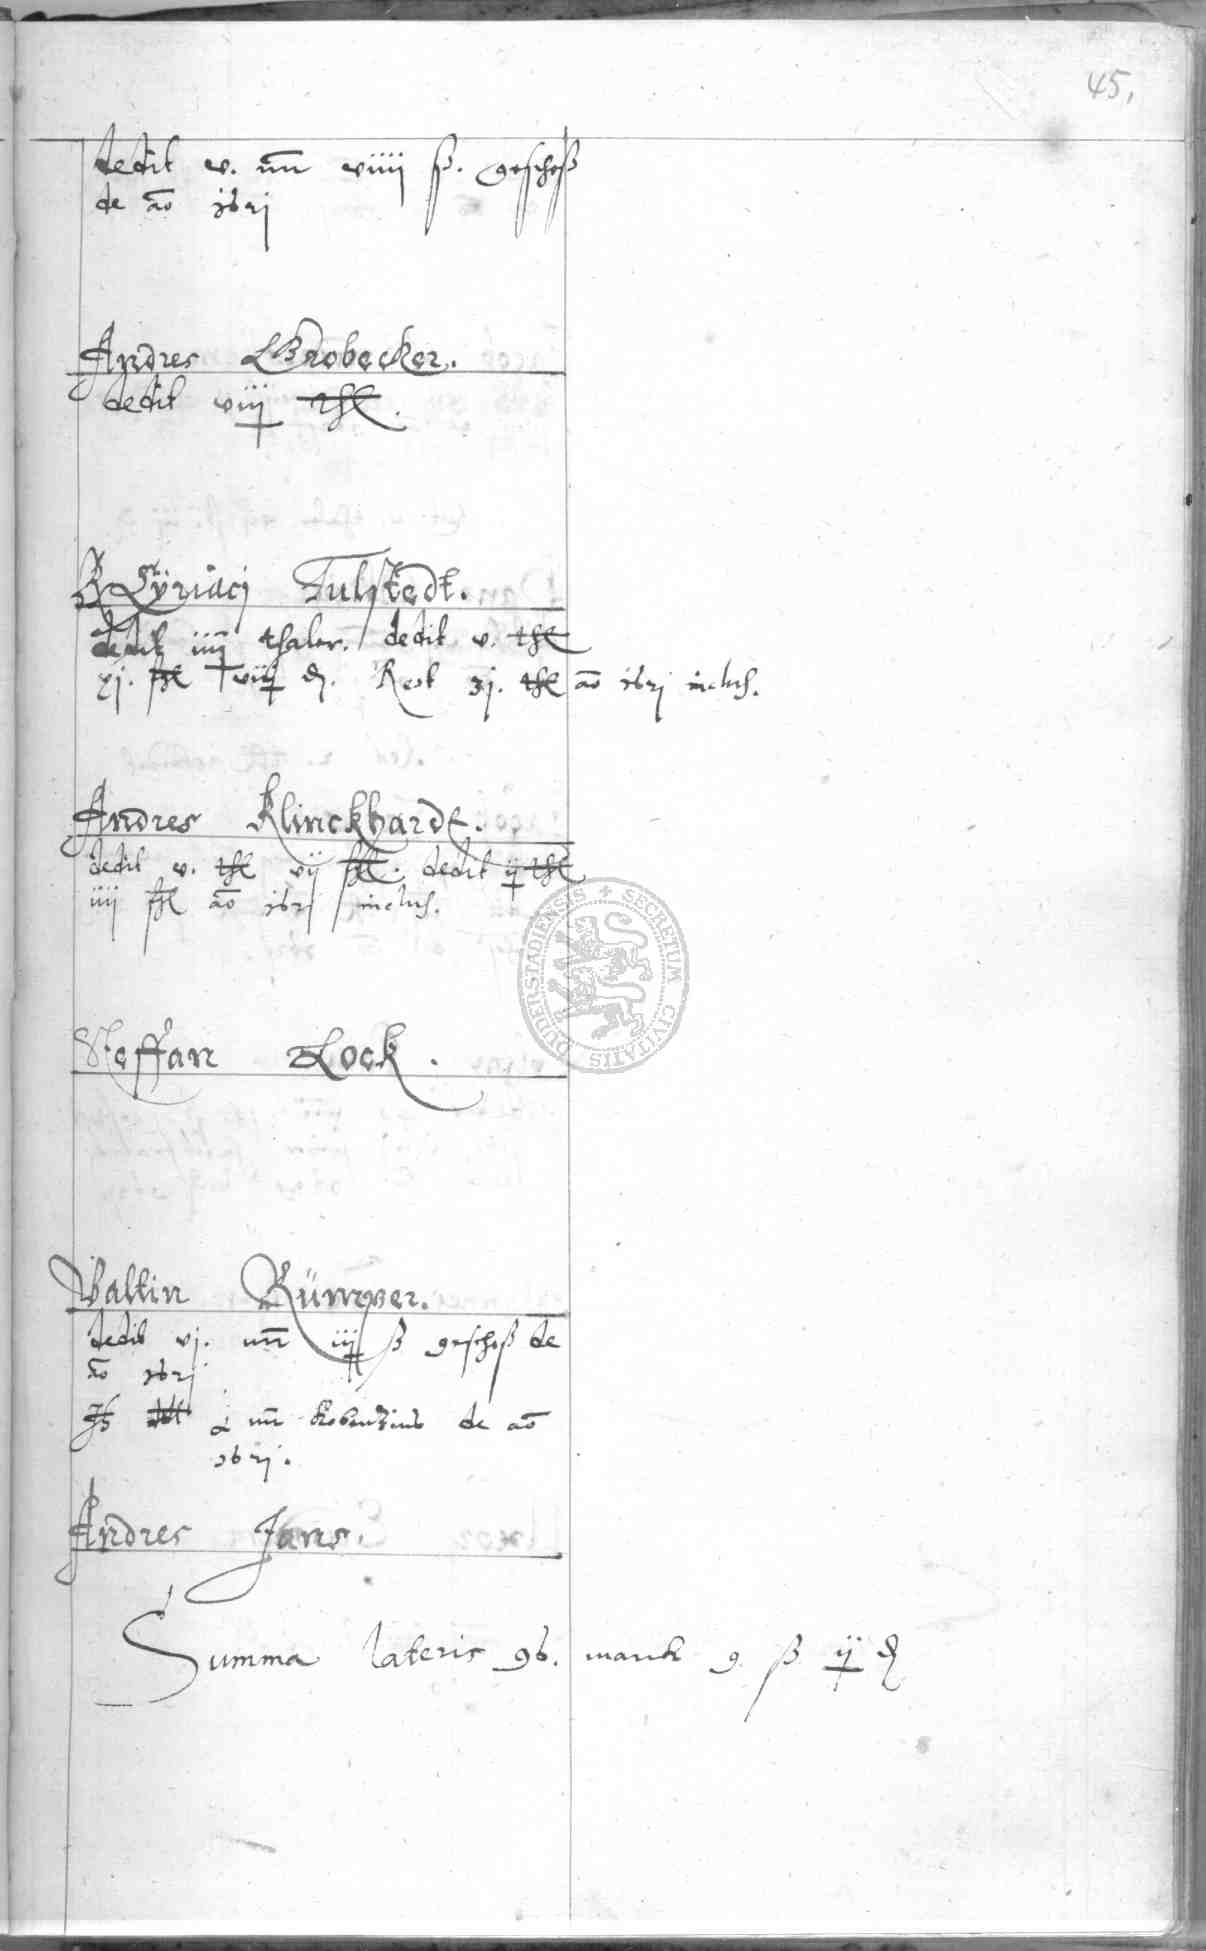 45.
dedit v. mr viiij ß. geschoß
de ao 1621
Andres Brobecker.
dedit viij thl.
Cÿriaci Tulstedt.
dedit iiij thaler. dedit v. thl
xj. ßl viij d. Rest 3j. thl ao 1621 inclus.
Andres Klinckhardt.
dedit v. thl vij ßl. dedit ij thl
iiij ßl ao 1621 inclus.
Steffan Lock.
Valtin Rümper.
dedit vj. mr iij ß geschoß de
ao 1621
mr de ao
1621.
Andres Jans.
Summa lateris 96. marck 9. ß ij d
SECRETUM CIVITATIS DUDERSTADIENSIS